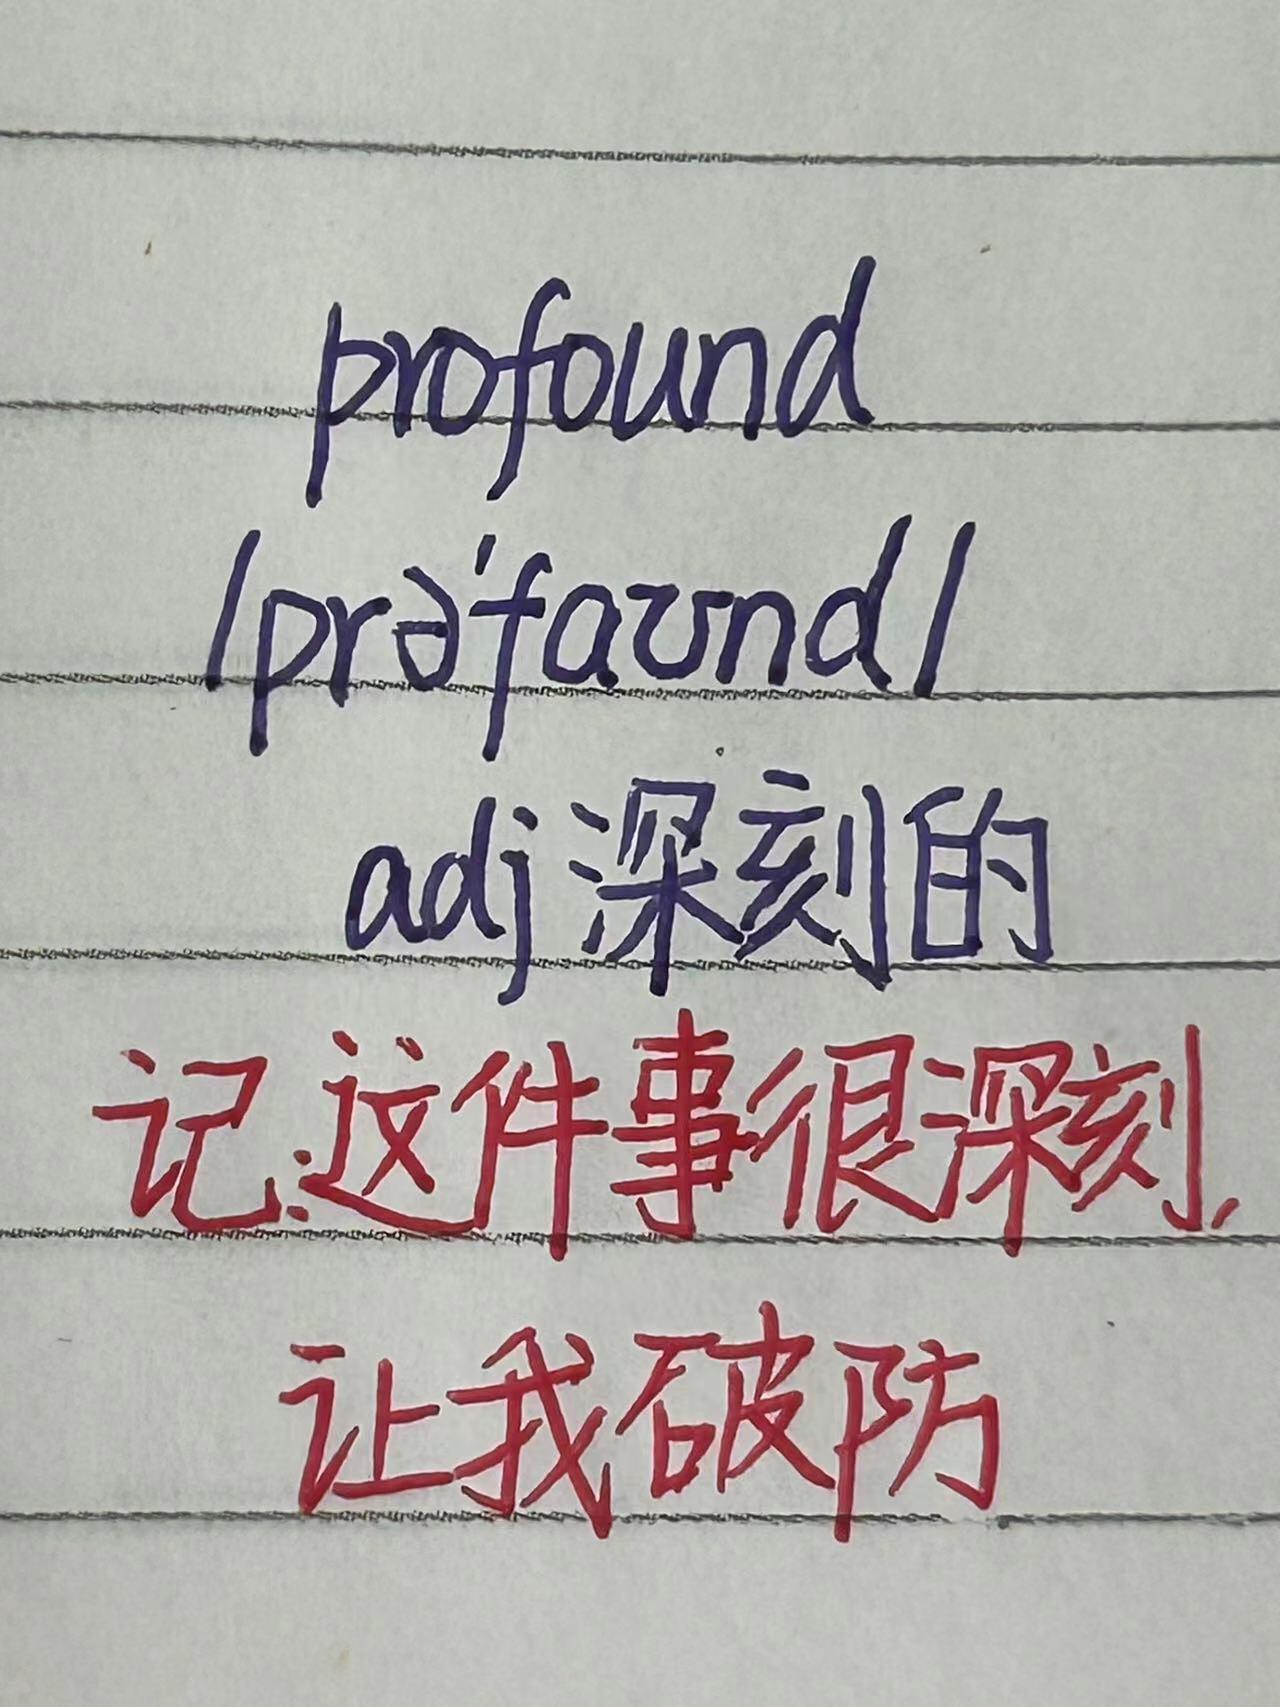 profound
/prə'faʊnd/
adj 深刻的
记:这件事很深刻,
让我破防